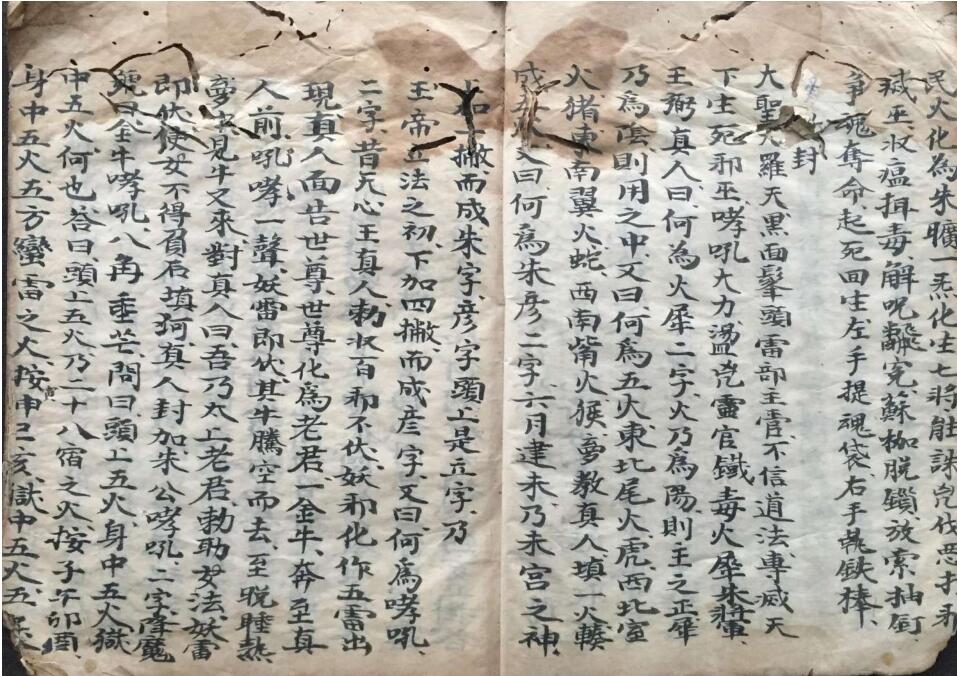 民火化為朱曠一炁化生七将能誅鬼伐惡打邪
滅巫收瘟揖毒解呪離冤蘇枷脱鎖放索抽釘
争魂奪命起死回生左手提魂袋右手執鉄棒、
封
大聖大羅天黑面鬅頭雷部主霄、不信道法專滅天
下生死邪巫、哮吼大力盪鬼靈官鐵毒火犀朱將軍、
王弼真人曰、何為火犀二字、火乃為陽則主之正犀
乃為陰則用之中、又曰、何為五火東北尾火虎、西北室
火猪、東南翼火蛇、西南觜火猴、夢教真人填一火轃
成 又曰、何為朱彦二字、六月建未、乃未宮之神
撇而成朱字、彦字頭上是立字、乃
王帝立法之初、下加四撇、而成彦字、又曰、何為哮吼、
二字、昔无心王真人勅收百邪不伏、妖邪化作五雷出
現、真人面告世尊、世尊化為老君、一金牛、奔至真
人前、吼哮一聲、妖雷即伏、其牛騰空而去、至晚睡熟
夢 見牛又來、對真人曰、吾乃太上老君勅助女法、妖雷
即伏、使女不得負君、填河真人封加朱公哮吼、二字、降魔
金牛哮吼、八角垂芒、問曰、頭上五火、身中五火獄
中五火何也、答曰、頭上五火乃二十八宿之火、按子午卯酉、
身中五火五方蠻雷之火、按申巳亥、獄中五火五